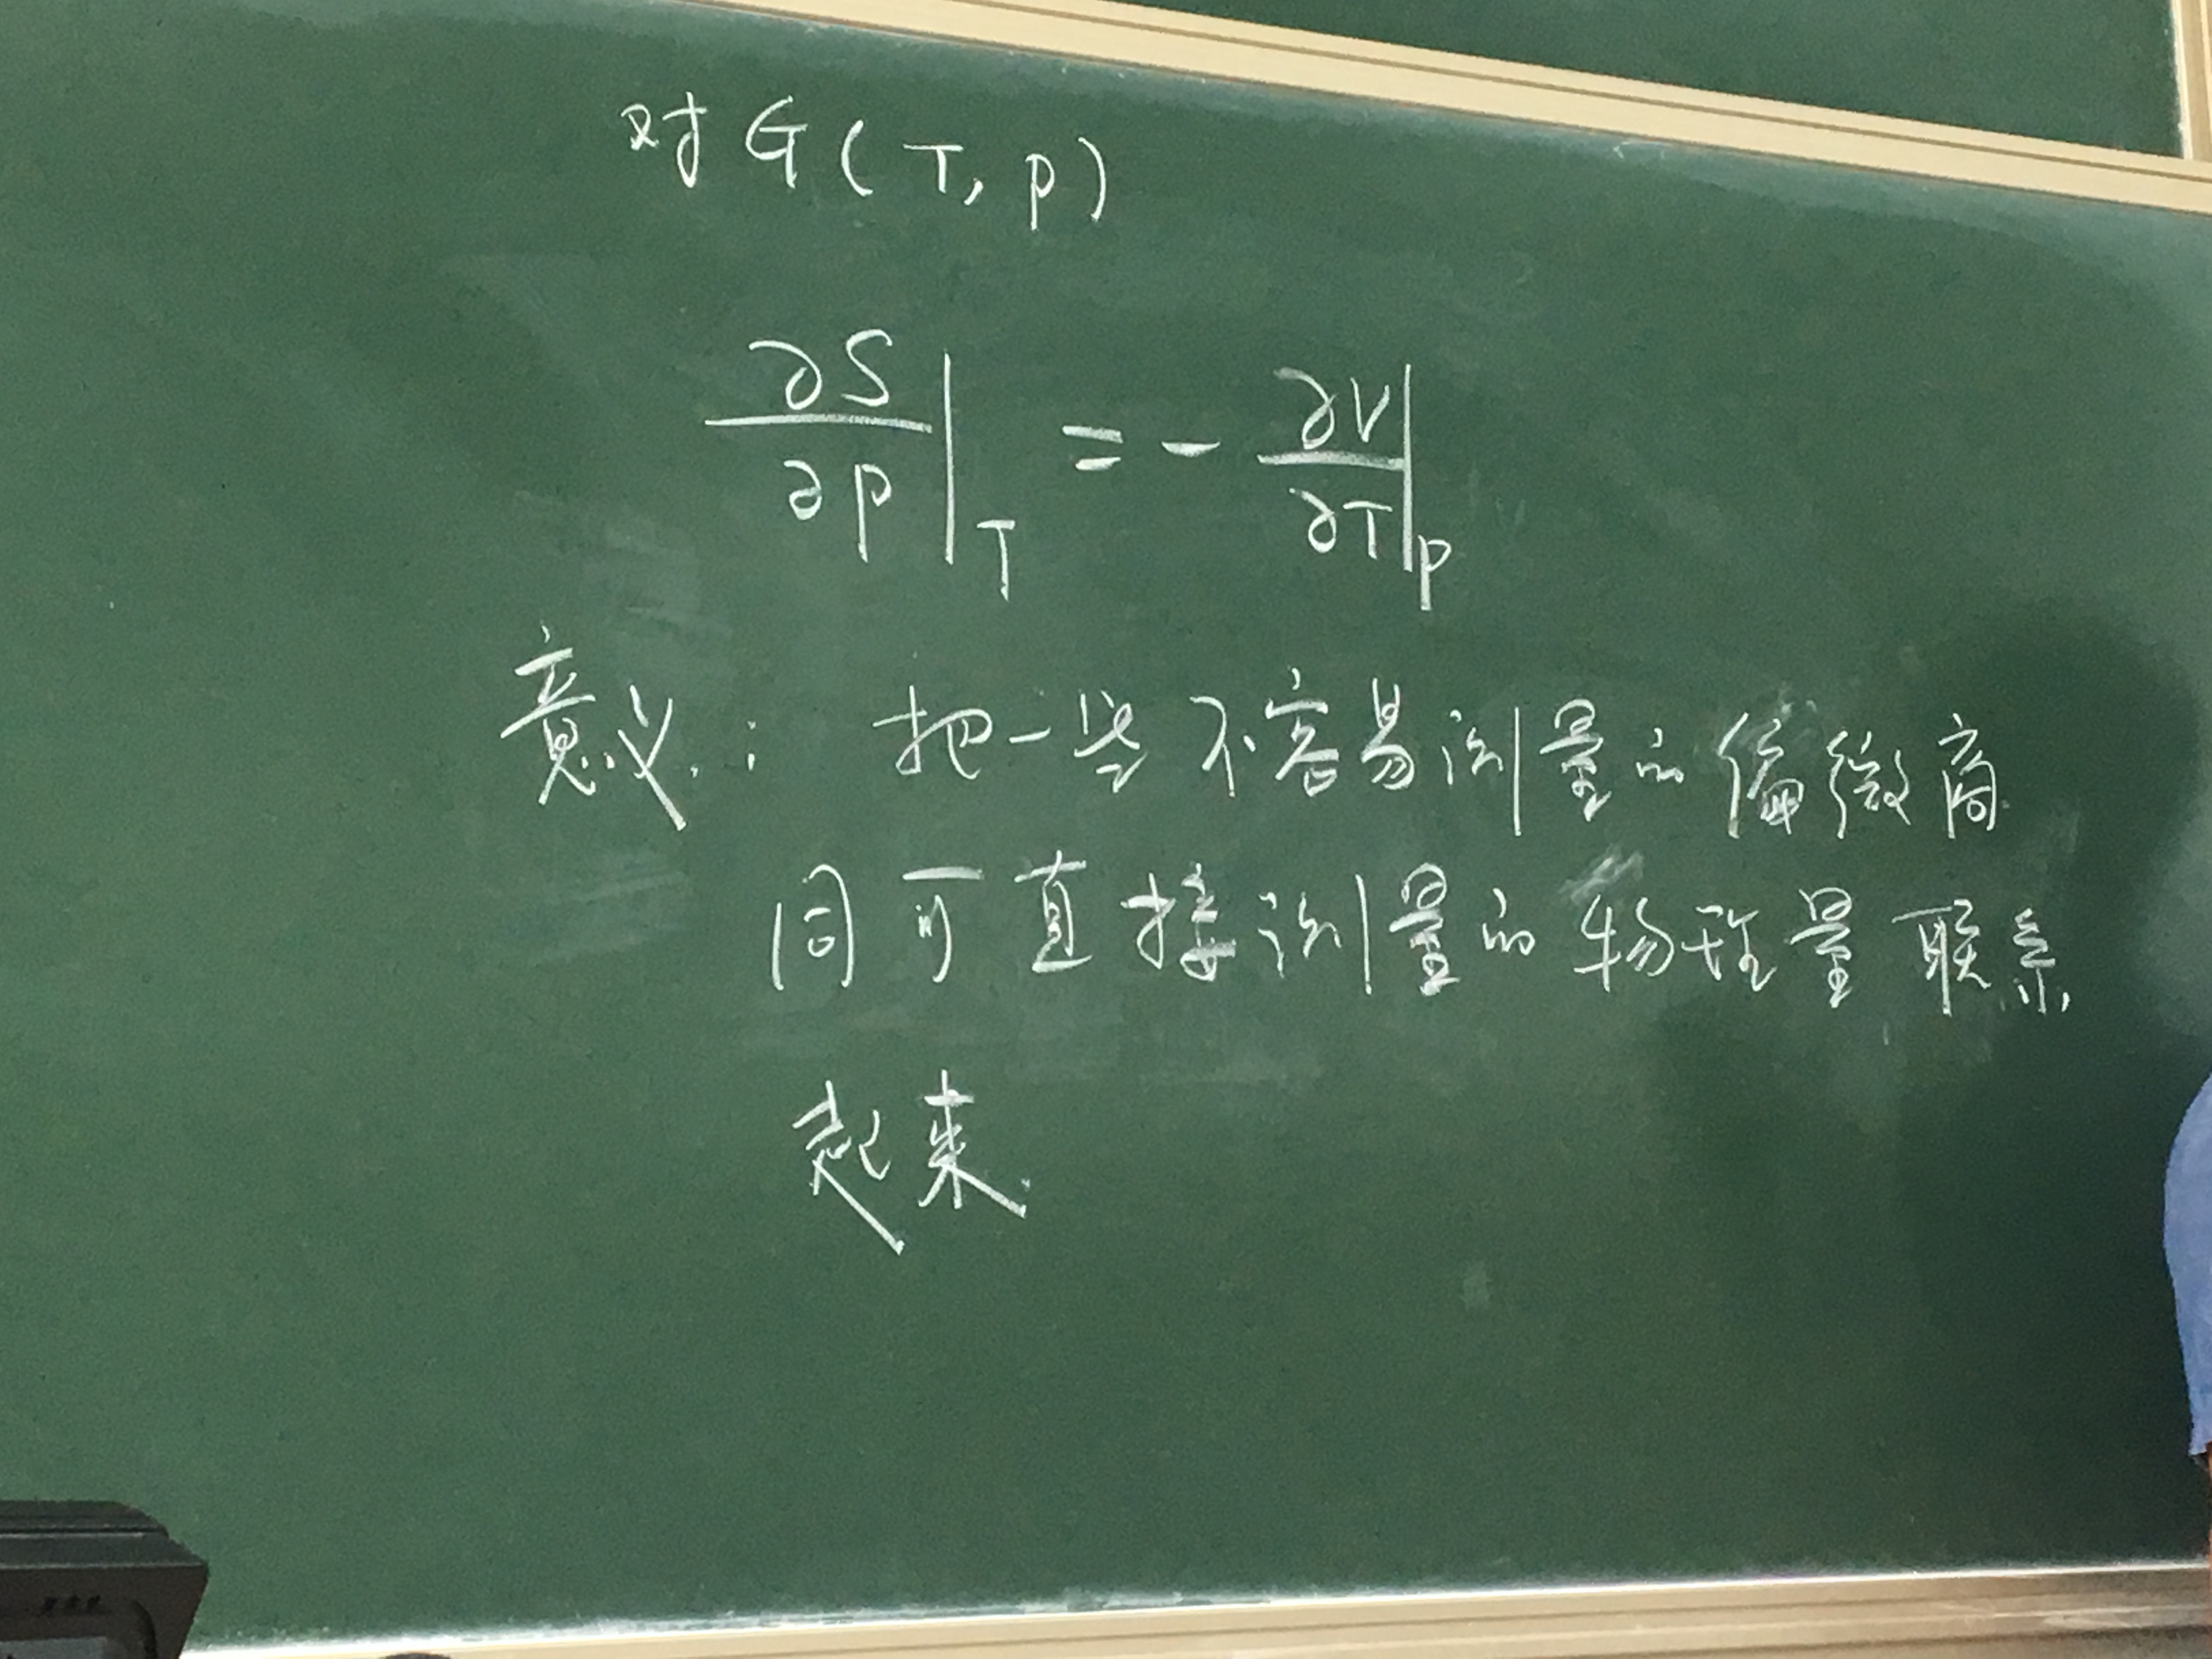 对G(T,p)
∂S/∂p|_T = -∂V/∂T|_p
意义: 把一些不容易测量的偏微商
同可直接测量的物理量联系
起来.